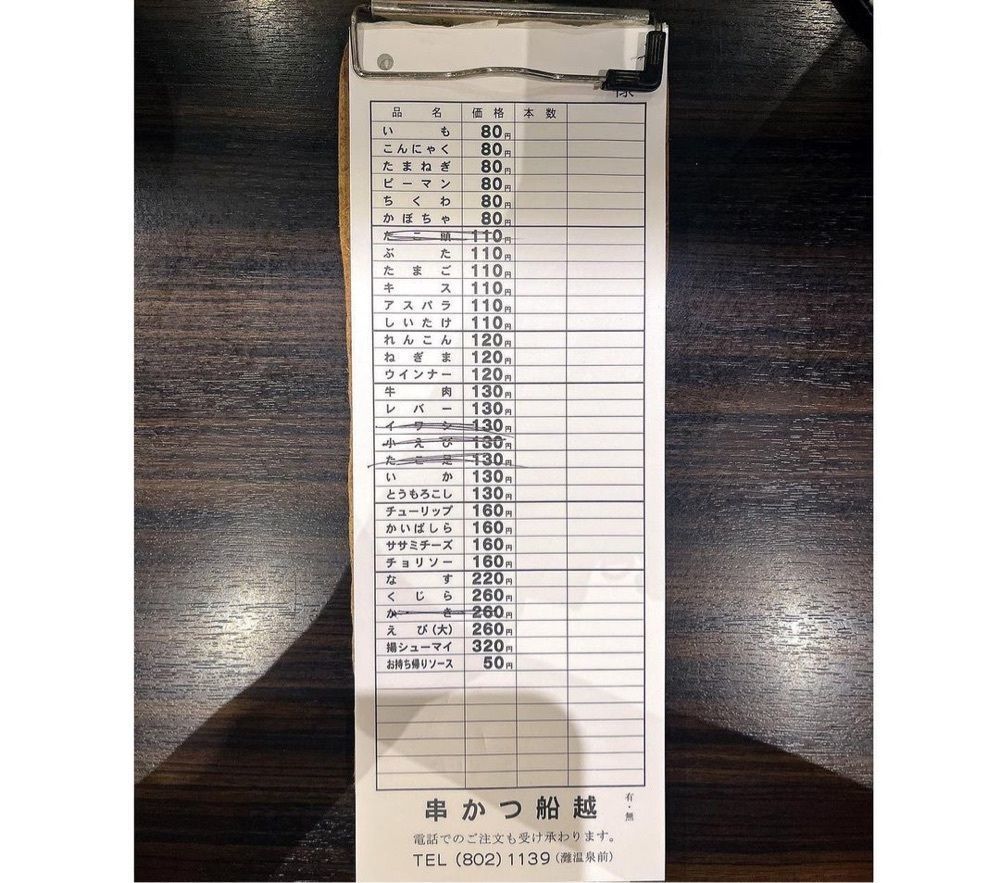 様
品名 価格 本数
いも 80円
こんにゃく 80円
たまねぎ 80円
ピーマン 80円
ちくわ 80円
かぼちゃ 80円
たこ頭 110円
ぶた 110円
たまご 110円
キス 110円
アスパラ 110円
しいたけ 110円
れんこん 120円
ねぎま 120円
ウインナー 120円
牛肉 130円
レバー 130円
イワシ 130円
小えび 130円
たこ足 130円
いか 130円
とうもろこし 130円
チューリップ 160円
かいばしら 160円
ササミチーズ 160円
チョリソー 160円
なす 220円
くじら 260円
かき 260円
えび(大) 260円
揚シューマイ 320円
お持ち帰りソース 50円
串かつ船越 有・無
電話でのご注文も受け承わります。
TEL (802) 1139 (灘温泉前)